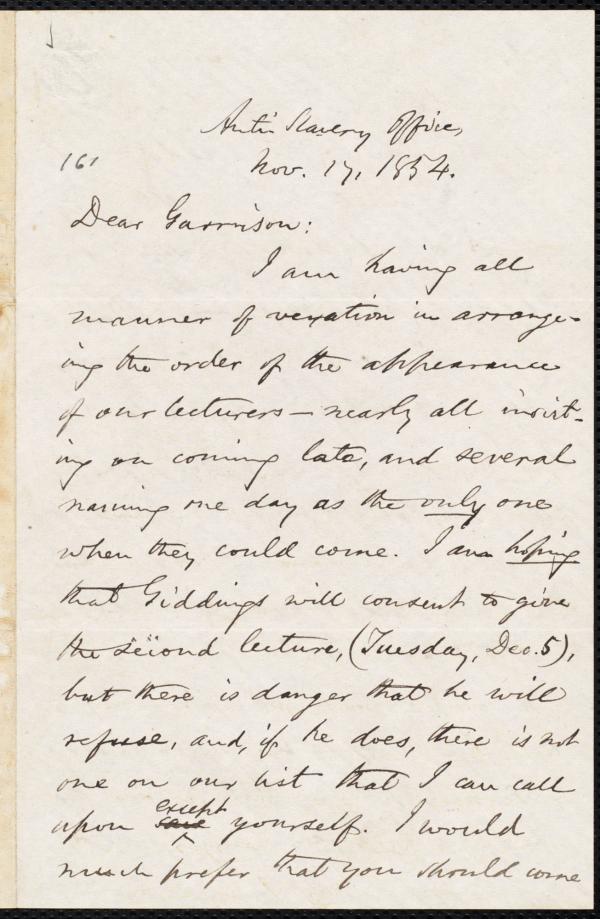 Anti Slavery Office,
161
Nov. 17, 1854.
Dear Garrison:
I am having all
manner of vexation in arrange-
ing the order of the appearance
of our lecturers — nearly all insist-
ing on coming late, and several
naming one day as the only one
when they could come. I am hoping
that Giddings will consent to give
the second lecture, (Tuesday, Dec. 5),
but there is danger that he will
refuse, and, if he does, there is not
one on our list that I can call
except
upon save yourself. I would
much prefer that you should come